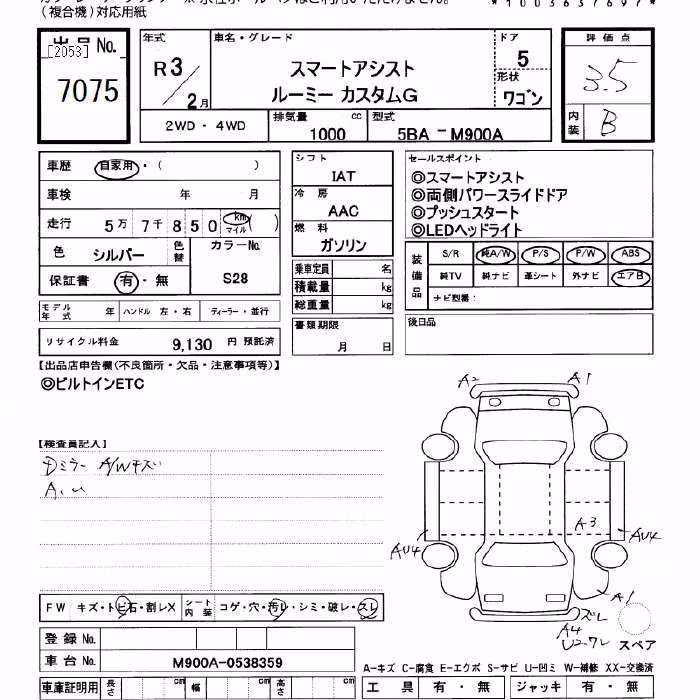 (複合機)対応用紙
*1003637697*
出品 No.
[2053]
7075
年式 車名・グレード ドア
R3/2月 スマートアシスト 5
ルーミー カスタムG 形状 ワゴン
2WD・4WD 排気量 1000 cc 型式 5BA-M900A
評価点
3.5
内装 B
車歴 自家用・( )
車検 年 月
走行 5万7千850 km マイル ( )
色 シルバー 色替 カラーNo. S28
保証書 有・無
シフト IAT
冷房 AAC
燃料 ガソリン
乗車定員 名
積載量 kg
総重量 kg
書類期限
月 日
セールスポイント
◎スマートアシスト
◎両側パワースライドドア
◎プッシュスタート
◎LEDヘッドライト
装備品 S/R 純A/W P/S P/W ABS
純TV 純ナビ 革シート 外ナビ エアB
ナビ型番:
後日品
モデル年式 年 ハンドル 左・右 ディーラー・並行
リサイクル料金 9,130 円 預託済
【出品店申告欄(不良箇所・欠品・注意事項等)】
◎ビルトインETC
【検査員記入】
ミラー A/Wキズ
A2 A1
A3
AU4 AU4
A1
ズレ
A4
スペア
FW キズ・トビ石・割レX シート内装 コゲ・穴・汚レ・シミ・破レ・スレ
登録 No.
車台 No. M900A-0538359
車庫証明用 長さ cm 幅 cm 高さ cm
A-キズ C-腐食 E-エクボ S-サビ U-凹ミ W-補修 XX-交換済
工具 有・無 ジャッキ 有・無